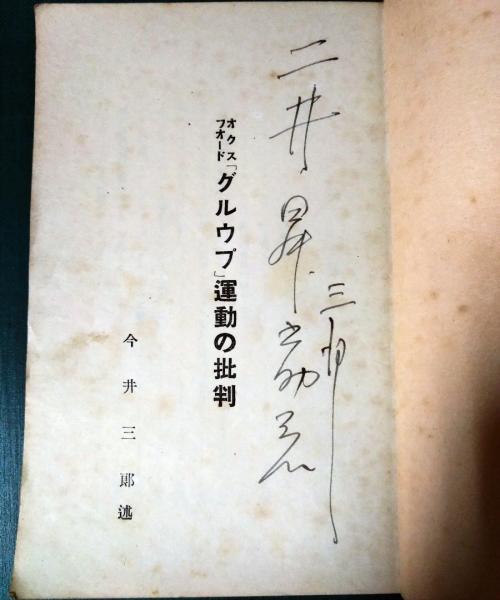 二井昇之助君
三郎
オクスフオード「グルウプ」運動の批判
今井三郎述